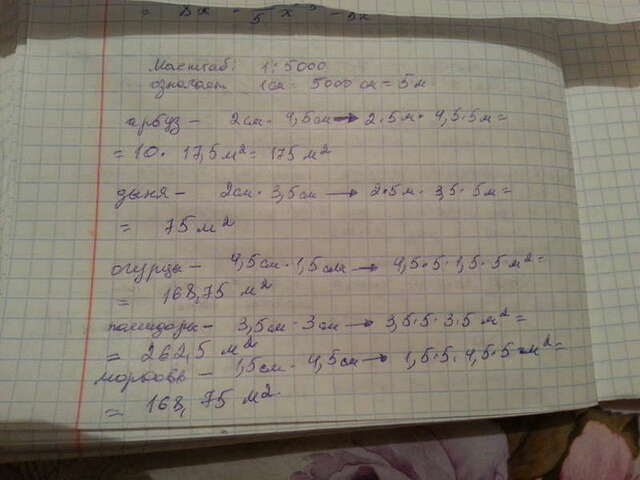 = 8x - /5 x³ - 3x
Масштаб: 1:5000
означает 1см - 5000 см = 5м
арбуз - 2см · 4,5см → 2·5м · 4,5·5м =
= 10 · 17,5м² = 175 м²
дыня - 2см · 3,5см → 2·5м · 3,5 · 5м =
= 75 м²
огурцы - 4,5см · 1,5см → 4,5·5·1,5·5м² =
= 168,75 м²
помидоры - 3,5см · 3см → 3,5·5·3·5 м² =
= 262,5 м²
морковь - 1,5см · 4,5см → 1,5·5·4,5·5 м² =
= 168,75 м²